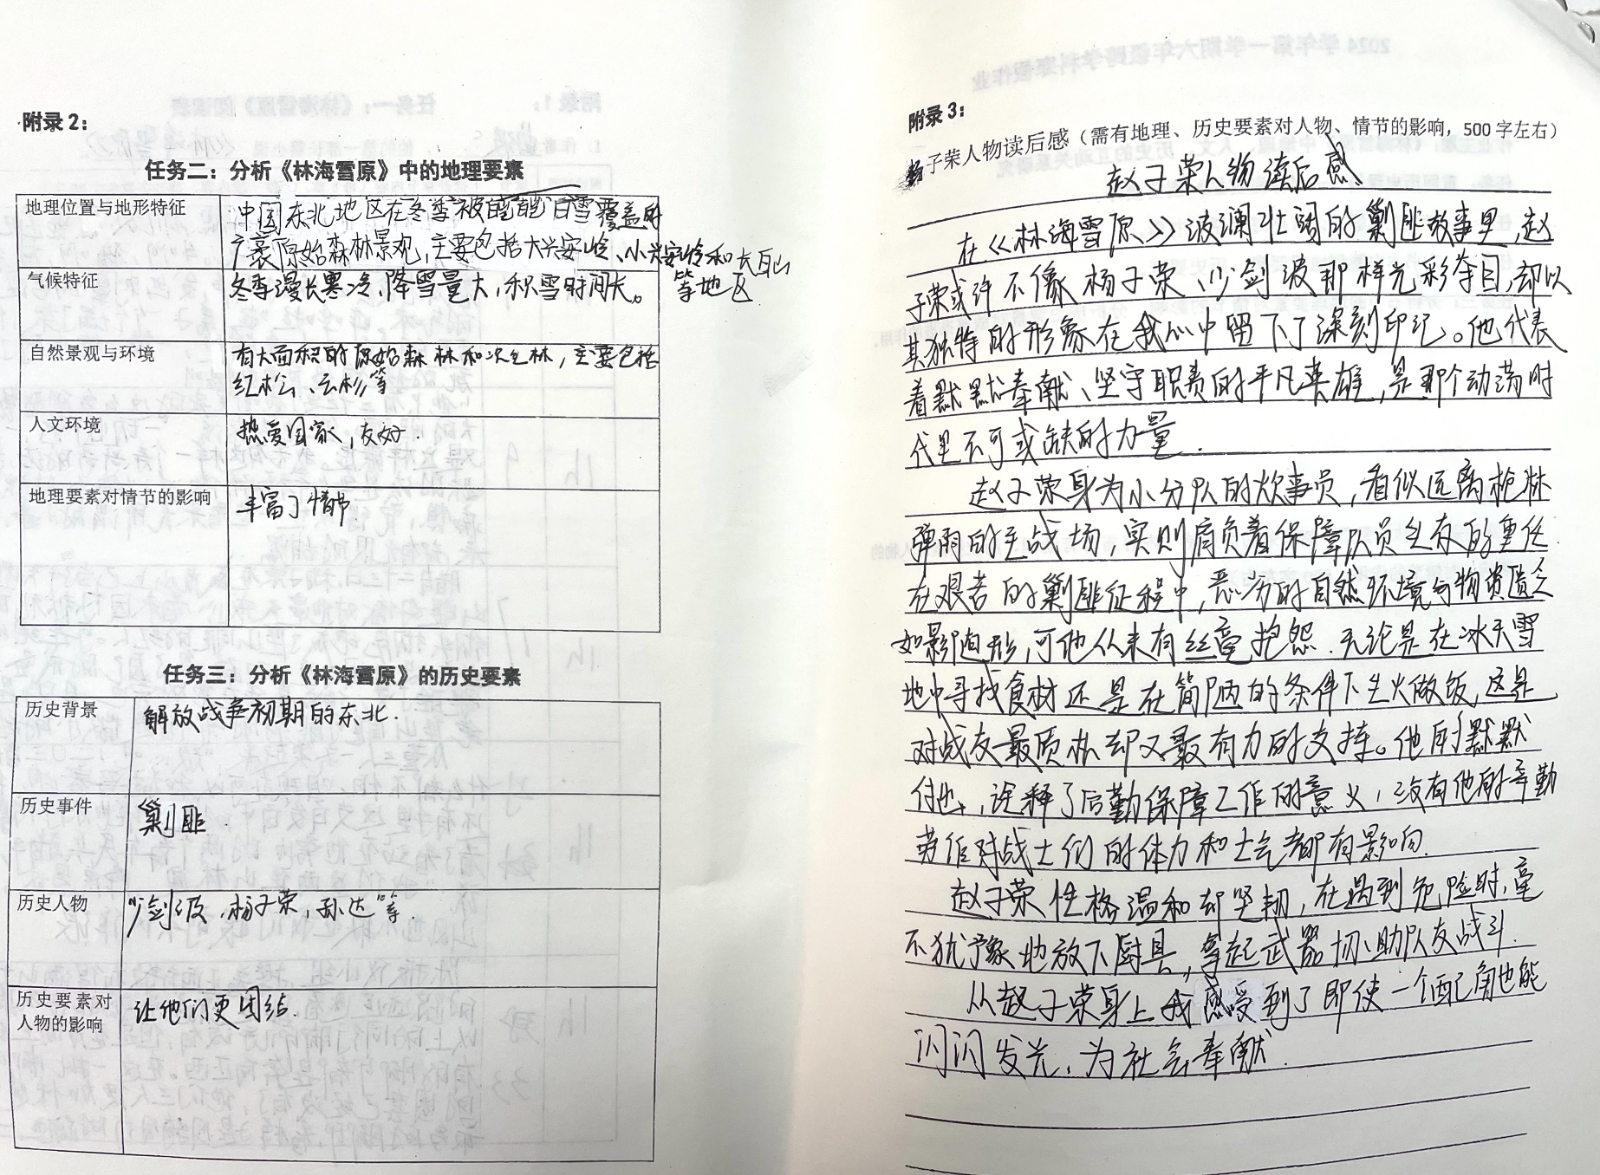 附录2：
任务二：分析《林海雪原》中的地理要素
地理位置与地形特征
中国东北地区在冬季被皑皑白雪覆盖的
广袤原始森林景观，主要包括大兴安岭、小兴安岭和长白山
等地区
气候特征
冬季漫长寒冷、降雪量大，积雪时间长。
自然景观与环境
有大面积的原始森林和次生林，主要包括
红松、云杉等
人文环境
热爱国家，友好.
地理要素对情节的影响
丰富了情节
任务三：分析《林海雪原》的历史要素
历史背景
解放战争初期的东北.
历史事件
剿匪.
历史人物
少剑波、杨子荣，孙达等.
历史要素对
人物的影响
让他们更团结.
附录3：
子荣人物读后感（需有地理、历史要素对人物、情节的影响，500字左右）
赵子荣人物读后感
在《林海雪原》波澜壮阔的剿匪故事里，赵
子荣或许不像杨子荣、少剑波那样光彩夺目，却以
其独特的形象在我心中留下了深刻印记。他代表
着默默奉献、坚守职责的平凡英雄，是那个动荡时
代里不可或缺的力量.
赵子荣身为小分队的炊事员，看似远离枪林
弹雨的主战场，实则肩负着保障队员生存的重任
在艰苦的剿匪征程中，恶劣的自然环境与物资匮乏
如影随形，可他从未有丝毫抱怨.无论是在冰天雪
地中寻找食材还是在简陋的条件下生火做饭，这是
对战友最质朴却又最有力的支持。他的默默
付出，诠释了后勤保障工作的意义，没有他的辛勤
劳作对战士们的体力和士气都有影响.
赵子荣性格温和却坚韧，在遇到危险时，毫
不犹豫地放下厨具，拿起武器协助队友战斗.
从赵子荣身上我感受到了即使一个配角也能
闪闪发光，为社会奉献.